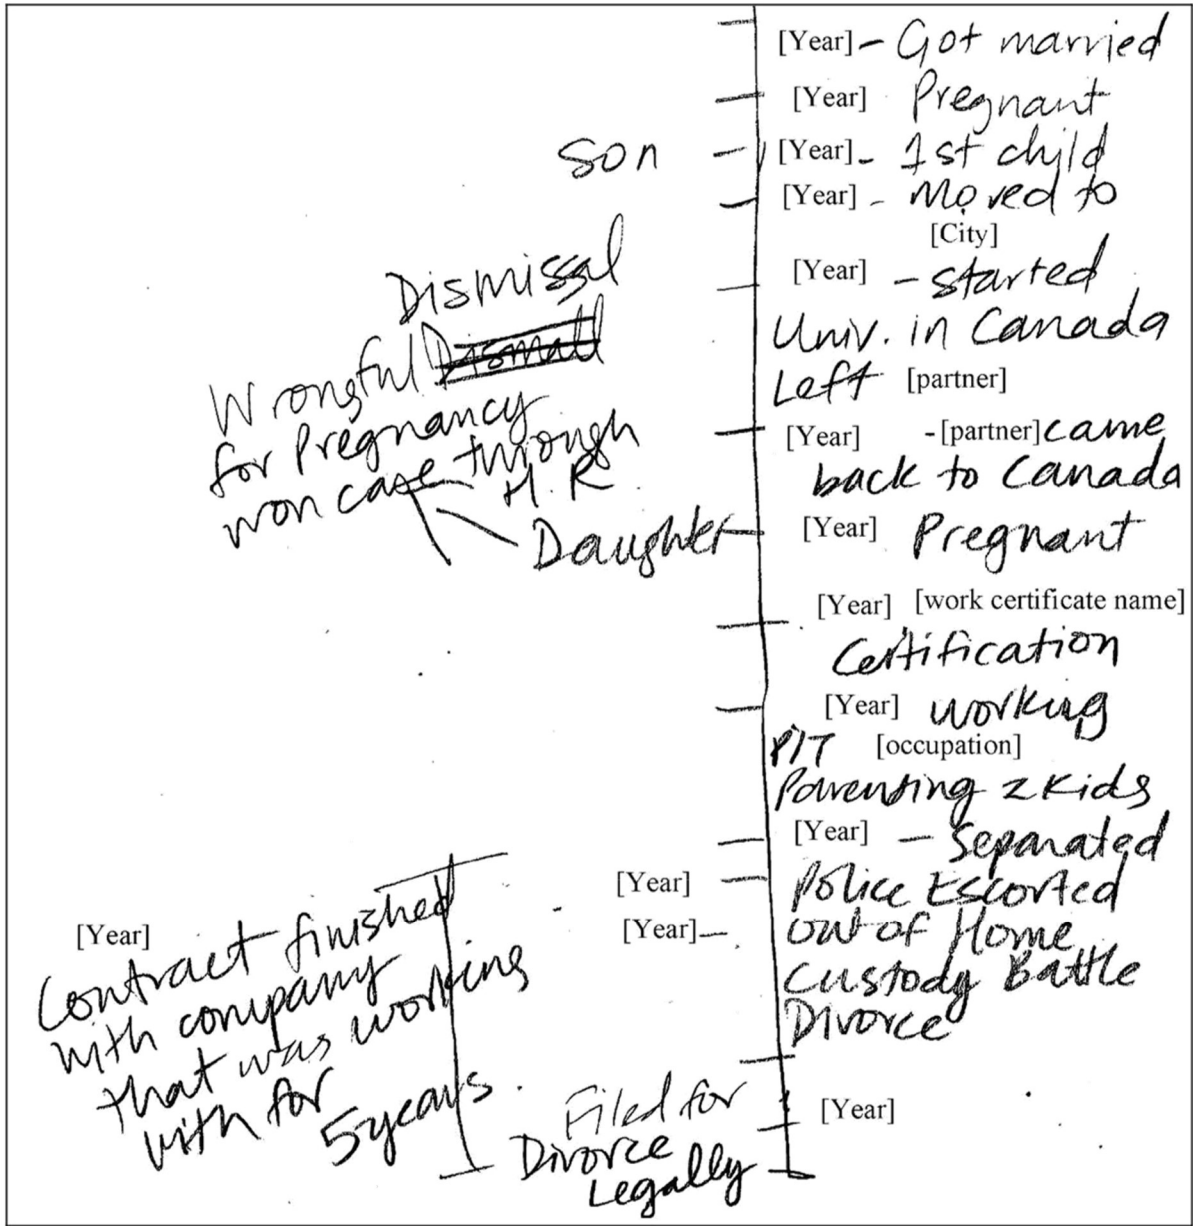 [Year] - Got married
[Year] Pregnant
Son
[Year] - 1st child
[Year] - Moved to
[City]
[Year] - started
Univ. in Canada
Left [partner]
Dismissal
Wrongful
for Pregnancy
won case through
H.R.
[Year] - [partner] came
back to Canada
Daughter
[Year] Pregnant
[Year] [work certificate name]
Certification
[Year] working
P/T [occupation]
Parenting 2 Kids
[Year] - Separated
[Year] Police Escorted
[Year] - out of Home
Custody Battle
Divorce
[Year]
Contract finished
with company
that was working
with for
5 years.
[Year]
Filed for
Divorce
Legally